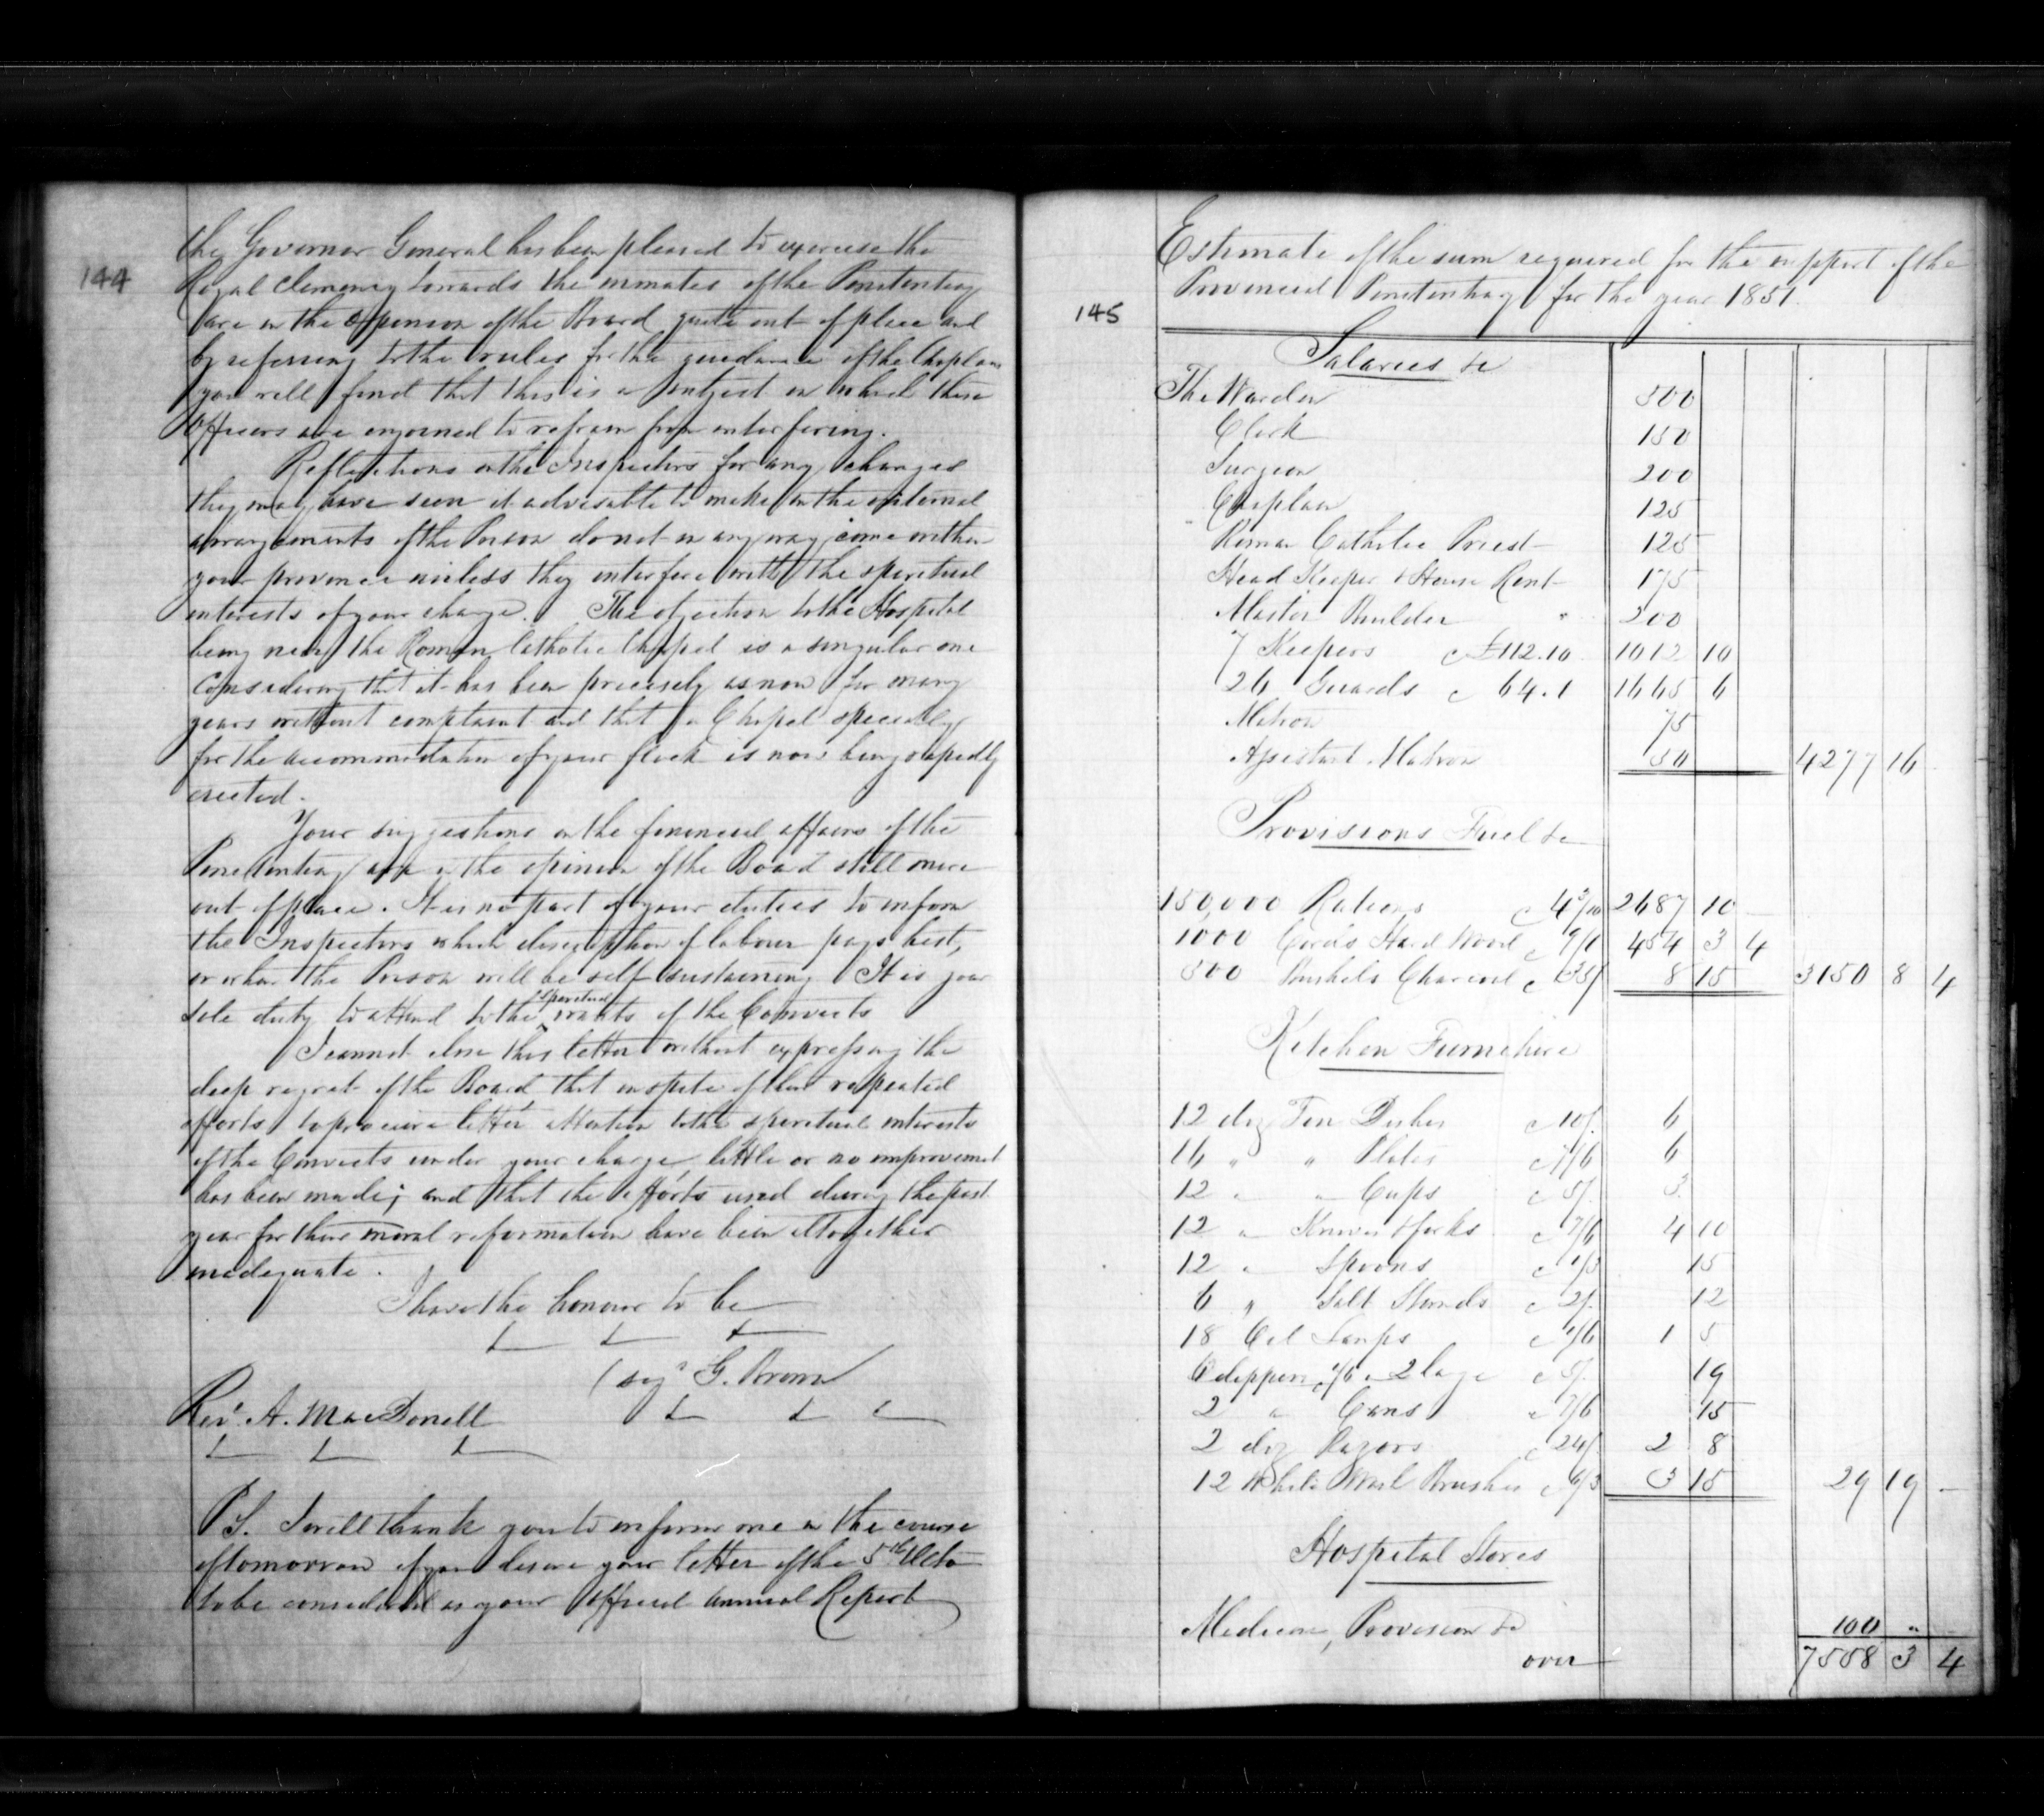 144
the Governor General has been pleased to exercise the
Royal clemency towards the inmates of the Penitentiary
are in the opinion of the Board quite out of place and
by referring to the rules for the guidance of the Chaplains
you will find that this is a subject in which these
Officers are enjoined to refrain from interfering.
Reflections on the Inspectors for any changes
they may have seen it advisable to make in the internal
arrangements of the Prison do not in any way come within
your province unless they interfere with the spiritual
interests of your charge. The objection to the Hospital
being near the Roman Catholic Chapel is a singular one
considering that it has been precisely as now for many
years without complaint and that a Chapel specially
for the accommodation of your flock is now being rapidly
erected.
Your suggestions on the financial affairs of the
Penitentiary are in the opinion of the Board still more
out of place. It is no part of your duties to inform
the Inspectors which description of labour pays best,
or when the Prison will be self sustaining It is your
sole duty to attend to the spiritual wants of the Convicts
I cannot close this letter without expressing the
deep regret of the Board that in spite of their repeated
efforts to procure better attention to the spiritual interests
of the Convicts under your charge, little or no improvement
has been made; and that the efforts used during the past
year for their moral reformation have been altogether
inadequate.
I have the honour to be
(sig^d G. Brown
Rev^d. A. MacDonell
P.S. I will thank you to inform me in the course
of tomorrow if you desire your letter of the 5th Octo
to be considered as your Official Annual Report
145
Estimate of the sum required for the support of the
Provincial Penitentiary for the year 1851.
Salaries &c
The Warden 500
Clerk 150
Surgeon 200
" Chaplain 125
Roman Catholic Priest 125
Head Keeper & House Rent 175
Master Builder " 200
7 Keepers @ £112.10 1012 10
26 Guards @ 64.1 1665 6
Matron 75
Assistant Matron 50 4277 16
Provisions Fuel &c
150,000 Rations @ 4 3/10 2687 10
1000 Cords Hard Wood @ 9/1 454 3 4
500 Bushels Charcoal @ 35/ 8 15 3150 8 4
Kitchen Furniture
12 doz Tin Dishes @ 10/. 6
16 " " Plates @ 7/6 6
12 " " Cups @ 5/. 3
12 " Knives & forks @ 7/6 4 10
12 " Spoons @ 1/3 15
6 " Salt Stands @ 2/. 12
18 Oil Lamps @ 1/6 1 5
6 dippers @ 1/6 " 2 large @ 5/. 19
2 " Cans @ 7/6 15
2 doz Razors @ 24/. 2 8
12 White Wash Brushes @ 6/3 3 15 29 19 -
Hospital Stores
Medicine, Provision &c 100 "
over 7558 3 4